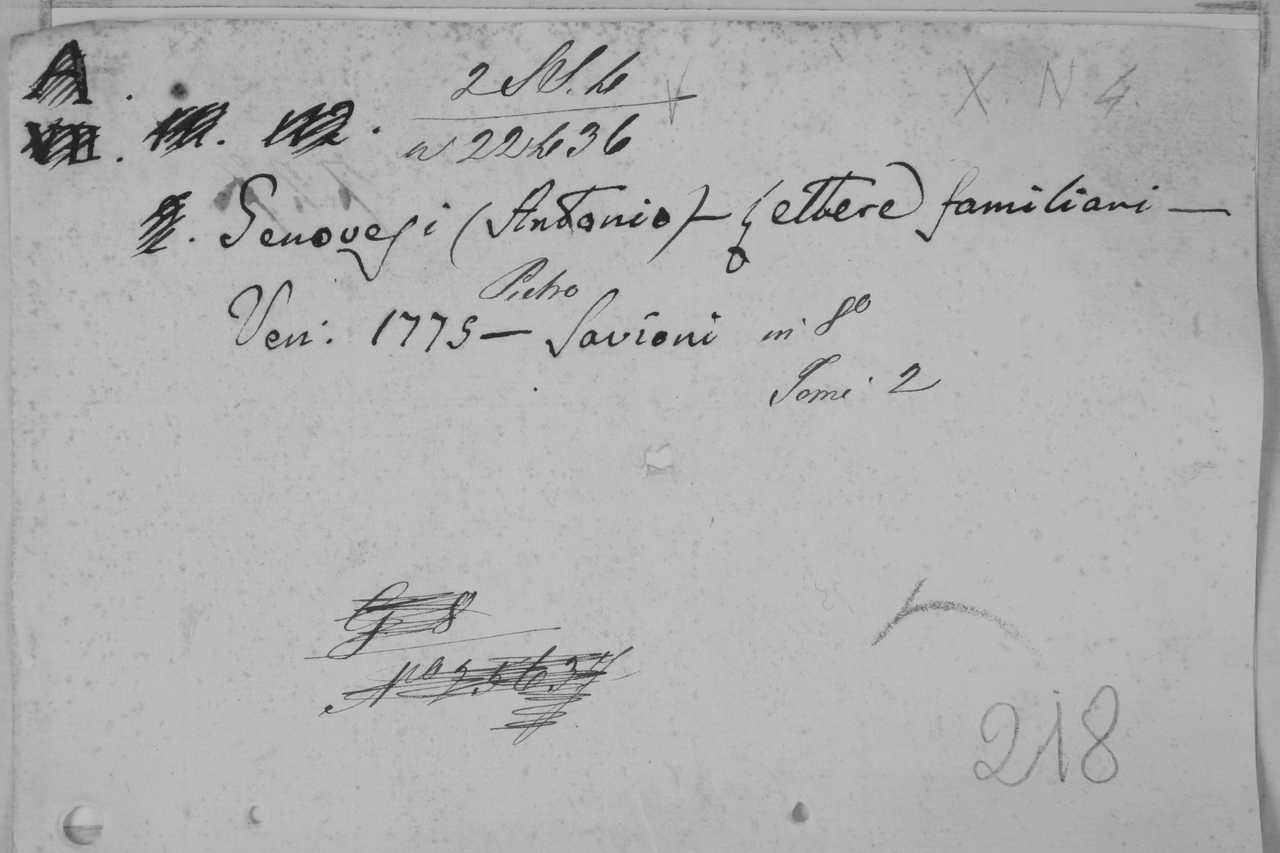 A.
VII. III. 112.
n 22436
X N 4
Genovesi (Antonio) – Lettere familiari –
Ven: 1775 – Pietro Savioni in 8º
Tomi 2
G 8
218